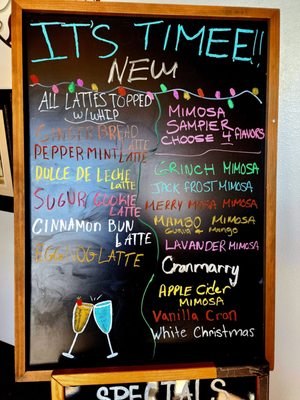 IT'S TIMEE!!
NEW
ALL LATTES TOPPED
W/WHIP
GINGERBREAD
LATTE
PEPPERMINT LATTE
DULCE DE LECHE
LATTE
SUGAR COOKIE
LATTE
CINNAMON BUN
LATTE
EGGNOG LATTE
MIMOSA
SAMPLER
CHOOSE 4 FLAVORS
GRINCH MIMOSA
JACK FROST MIMOSA
MERRY MOSA MIMOSA
MAMBO MIMOSA
Guava & Mango
LAVANDER MIMOSA
Cranmarry
APPLE Cider
MIMOSA
Vanilla Cran
White Christmas
SPECIALS